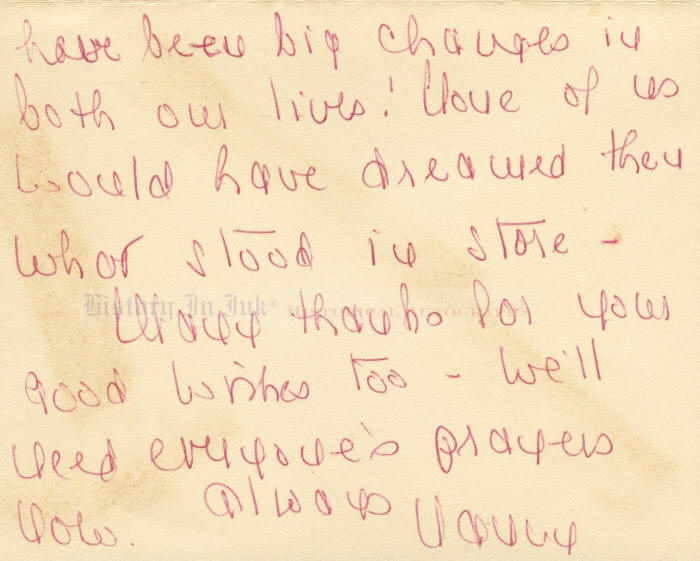 have been big changes in
both our lives! None of us
would have dreamed then
what stood in store -
History In Ink®
Many thanks for your
good wishes too - we'll
need everyone's prayers
now. Always Nancy